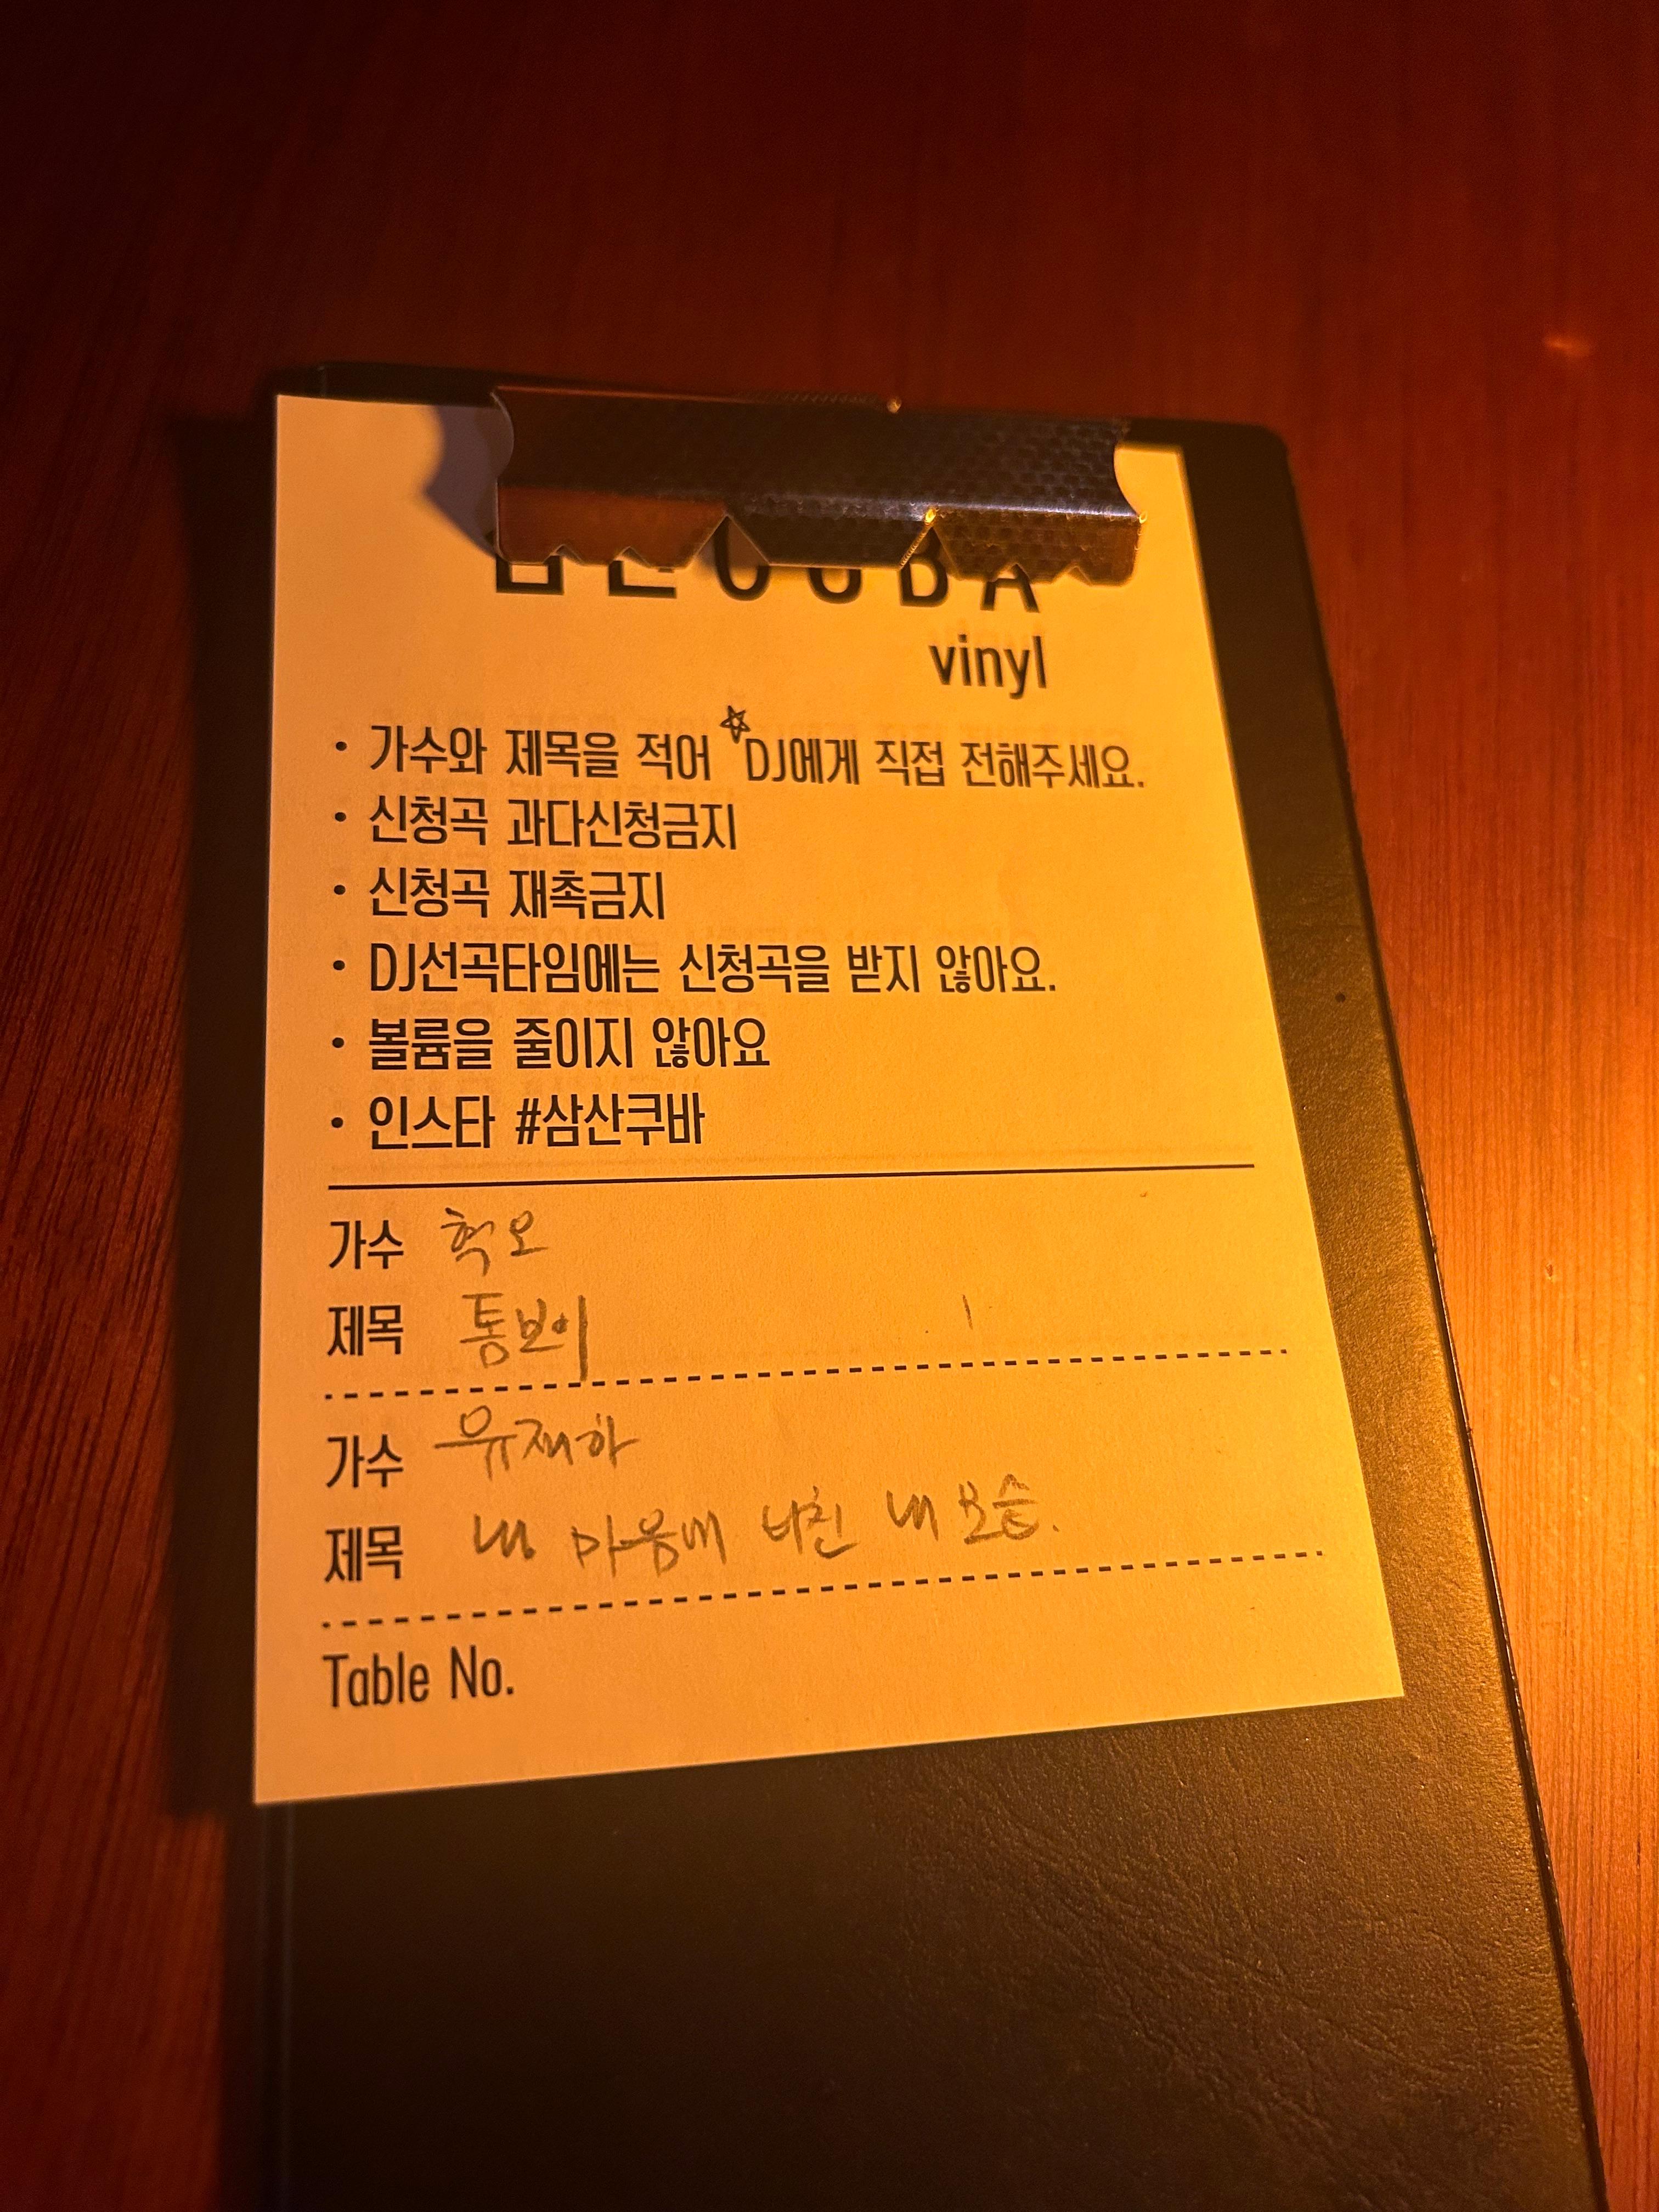 삼산CUBA
vinyl
• 가수와 제목을 적어 ☆DJ에게 직접 전해주세요.
• 신청곡 과다신청금지
• 신청곡 재촉금지
• DJ선곡타임에는 신청곡을 받지 않아요.
• 볼륨을 줄이지 않아요
• 인스타 #삼산쿠바
가수 혁오
제목 톰보이
가수 유재하
제목 내 마음에 비친 내 모습.
Table No.